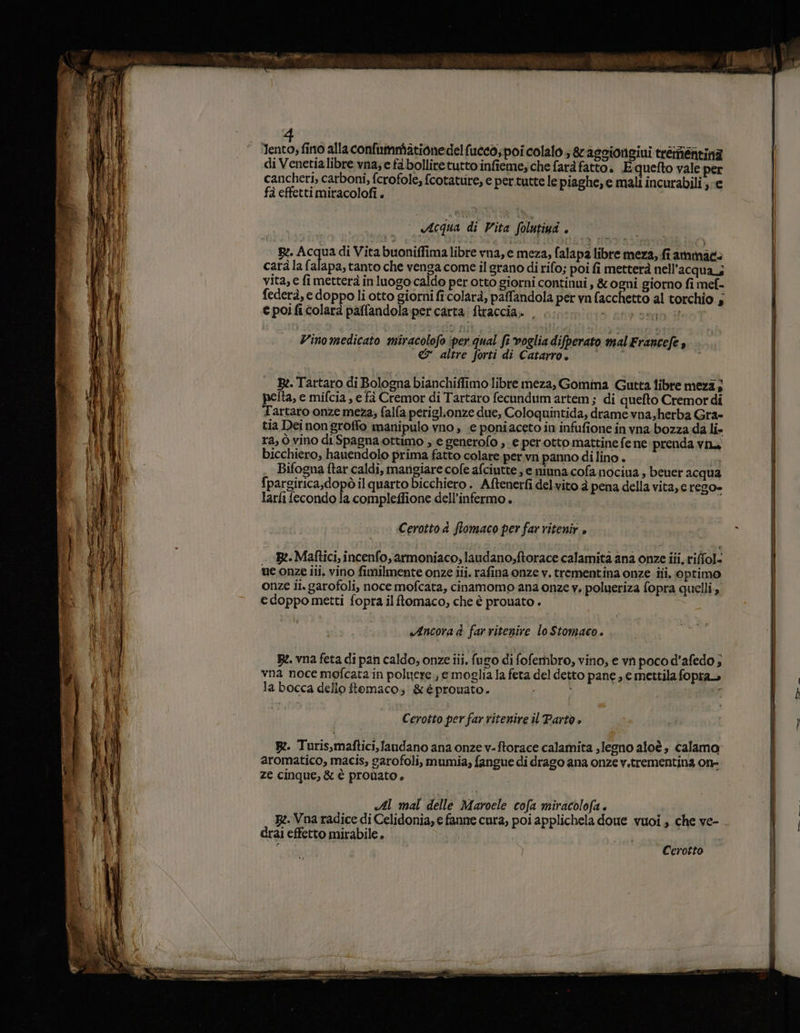 4
lento, fino alla confummatione del fucco, poi colalo, & aggiongiui trementina
di Venetia libre vna, e fà bollire tutto infieme, che farà fatto. E quefto vale per
cancheri, carboni, fcrofole, fcotature, e per tutte le piaghe, e mali incurabili, e
fà effetti miracolofi.
Acqua di Vita folutiua.
℞. Acqua di Vita buoniffima libre vna, e meza, falapa libre meza, fi ammac-
carà la falapa, tanto che venga come il grano di rifo; poi fi metterà nell'acqua
vita, e fi metterà in luogo caldo per otto giorni continui, & ogni giorno fi mef-
federà, e doppo li otto giorni fi colarà, paffandola per vn facchetto al torchio,
e poi fi colarà paffandola per carta ftraccia.
Vino medicato miracolofo per qual fi voglia difperato mal Francefe,
& altre forti di Catarro.
℞. Tartaro di Bologna bianchiffimo libre meza, Gomma Gutta libre meza,
pefta, e mifcia, e fà Cremor di Tartaro fecundum artem; di quefto Cremor di
Tartaro onze meza, falfa perigl.onze due, Coloquintida, drame vna, herba Gra-
tia Dei non groffo manipulo vno, e poni aceto in infufione in vna bozza da li-
ra, ò vino di Spagna ottimo, e generofo, e per otto mattine fe ne prenda vn
bicchiero, hauendolo prima fatto colare per vn panno di lino.
Bifogna ftar caldi, mangiare cofe afciutte, e niuna cofa nociua, beuer acqua
fpargirica, dopò il quarto bicchiero. Aftenerfi del vito à pena della vita, e rego-
larfi fecondo la compleffione dell'infermo.
Cerotto à ftomaco per far ritenir.
℞. Maftici, incenfo, armoniaco, laudano, ftorace calamita ana onze iii, riffol-
ue onze iii. vino fimilmente onze iii. rafina onze v. trementina onze iii. optimo
onze ii. garofoli, noce mofcata, cinamomo ana onze v. polueriza fopra quelli,
e doppo metti fopra il ftomaco, che è prouato.
Ancora à far ritenire lo Stomaco.
℞. vna feta di pan caldo, onze iii. fugo di fofembro, vino, e vn poco d'afedo;
vna noce mofcata in poluere, e moglia la feta del detto pane, e mettila fopra
la bocca dello ftomaco, & è prouato.
Cerotto per far ritenire il Parto.
℞. Turis, maftici, laudano ana onze v. ftorace calamita, legno aloè, calamo
aromatico, macis, garofoli, mumia, fangue di drago ana onze v. trementina on-
ze cinque, & è prouato.
Al mal delle Maroele cofa miracolofa.
℞. Vna radice di Celidonia, e fanne cura, poi applichela doue vuoi, che ve-
drai effetto mirabile.
Cerotto